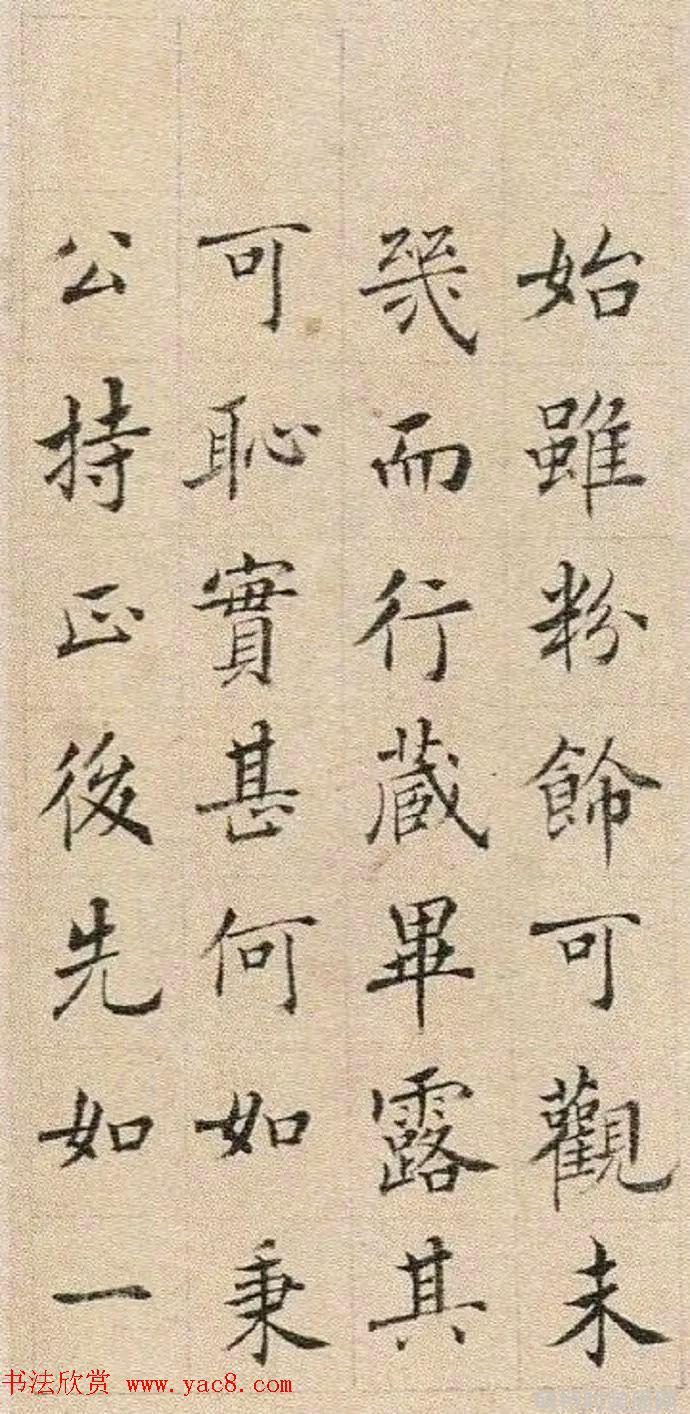 始雖粉飾可觀未
幾而行藏畢露其
可恥實甚何如秉
公持正後先如一
书法欣赏 www.yac8.com